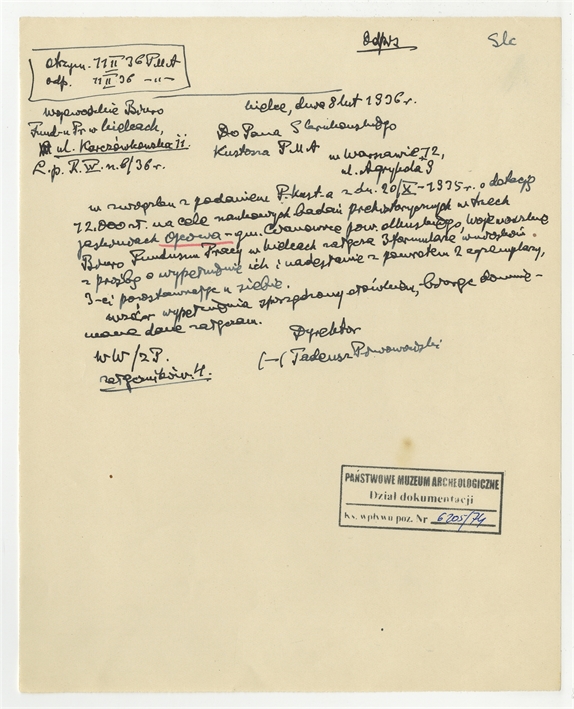 Odpis
Slc
otrzym. 11 II 36 P.M.A
odp. 11 II 36 -"-
Wojewódzkie Biuro
Fund-u Pr w Kielcach,
ul. Karczówkowska 11.
L.p. R.IV. n. 6/36 r.
Kielce, dnia 8 lut 1936 r.
Do Pana
Kustosza P.M.A
w Warszawie 72,
ul. Agrykola 9
W związku z podaniem P. Kust-a z dn. 20/XI-1935 r. o dotację
12.000 zł. na cele naukowych badań prehistorycznych w trzech
jaskiniach Ojcowa - gm. Cianowice pow. olkuskiego, Wojewódzkie
Biuro Funduszu Pracy w Kielcach załącza 3 formularze wniosków
z prośbą o wypełnienie ich i nadesłanie z powrotem 2 egzemplarzy,
3-ci pozostawiając u siebie.
Wzór wypełnienia sporządzony ołówkiem,
dane załączam.
Dyrektor
WW/ZP.
(-) Tadeusz
załączników 4.
PAŃSTWOWE MUZEUM ARCHEOLOGICZNE
Dział dokumentacji
Ks. wpływu poz. Nr 6205/74